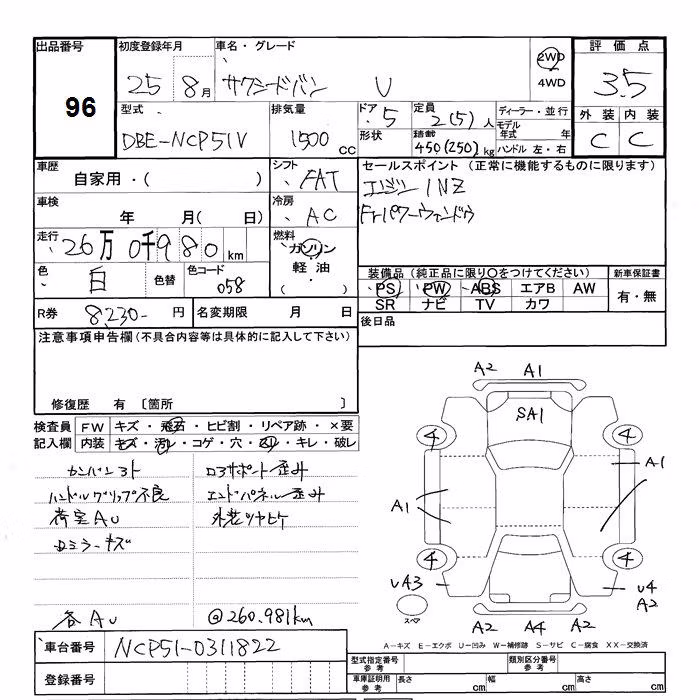 出品番号
96
初度登録年月
25年 8月
車名・グレード
サクシードバン U
2WD
4WD
評価点
3.5
外装 内装
C C
型式
DBE-NCP51V
排気量
1500 cc
ドア 5
形状
定員 2(5) 人
積載 450(250) kg
ディーラー・並行
モデル年式 年
ハンドル 左・右
車歴
自家用・( )
シフト
FAT
セールスポイント (正常に機能するものに限ります)
エンジン 1NZ
Frパワーウィンドウ
車検
年 月( 日)
冷房
AC
走行
26万0千980km
燃料
ガソリン
軽油・
( )
色
白
色替
色コード
058
装備品 (純正品に限り○をつけてください)
PS PW ABS エアB AW
SR ナビ TV カワ
新車保証書
有・無
R券 8,230- 円
名変期限 月 日
後日品
注意事項申告欄 (不具合内容等は具体的に記入して下さい)
修復歴 有 〔箇所 〕
検査員記入欄
FW キズ・飛石・ヒビ割・リペア跡・×要
内装 キズ・汚レ・コゲ・穴・スレ・キレ・破レ
カンバン3ト
ハンドルグリップ不良
荷室AU
ロミラーキズ
各AU
コアサポート歪み
エンドパネル歪み
外装ツヤヒケ
@260.981km
A2 A1
SA1
4 4
A1 A1
4 4
UA3
U4
A2
スペア
A2 A4 A2
A-キズ E-エクボ U-凹み W-補修跡 S-サビ C-腐食 XX-交換済
車台番号 NCP51-0311822
登録番号
型式指定番号 参考
類別区分番号 参考
車庫証明用 参考
長さ cm 幅 cm 高さ cm